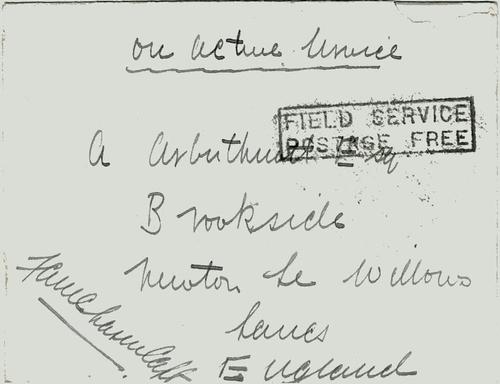 on active service
FIELD SERVICE
POSTAGE FREE
A Arbuthnott Esq
Brookside
Newton Le Willows
Lancs
England